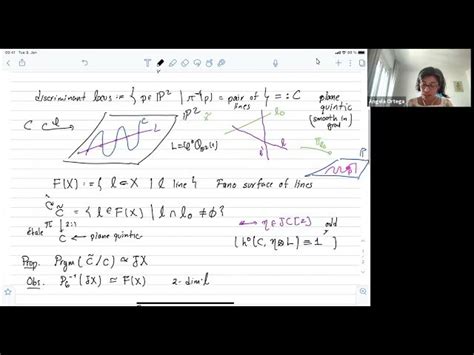 03:41 Tue 3. Jan
Angela Ortega
discriminant locus := { p ∈ ℙ² | π⁻¹(p) = pair of lines } =: C plane quintic (smooth in gral)
C
L
ℙ²
C
L = φ*O_ℙ²(1)
l₀
l
F(X) := { l ⊂ X | l line } Fano surface of lines
C̃ = { l ∈ F(X) | l ∩ l₀ ≠ ∅ }
étale π ↓ 2:1
C ← plane quintic
↔ η ∈ JC[2] odd
( h⁰(C, η⊗L) = 1 )
Prop. Prym (C̃/C) ≃ JX
Obs. P₆⁻¹(JX) ≃ F(X) 2-dim'l